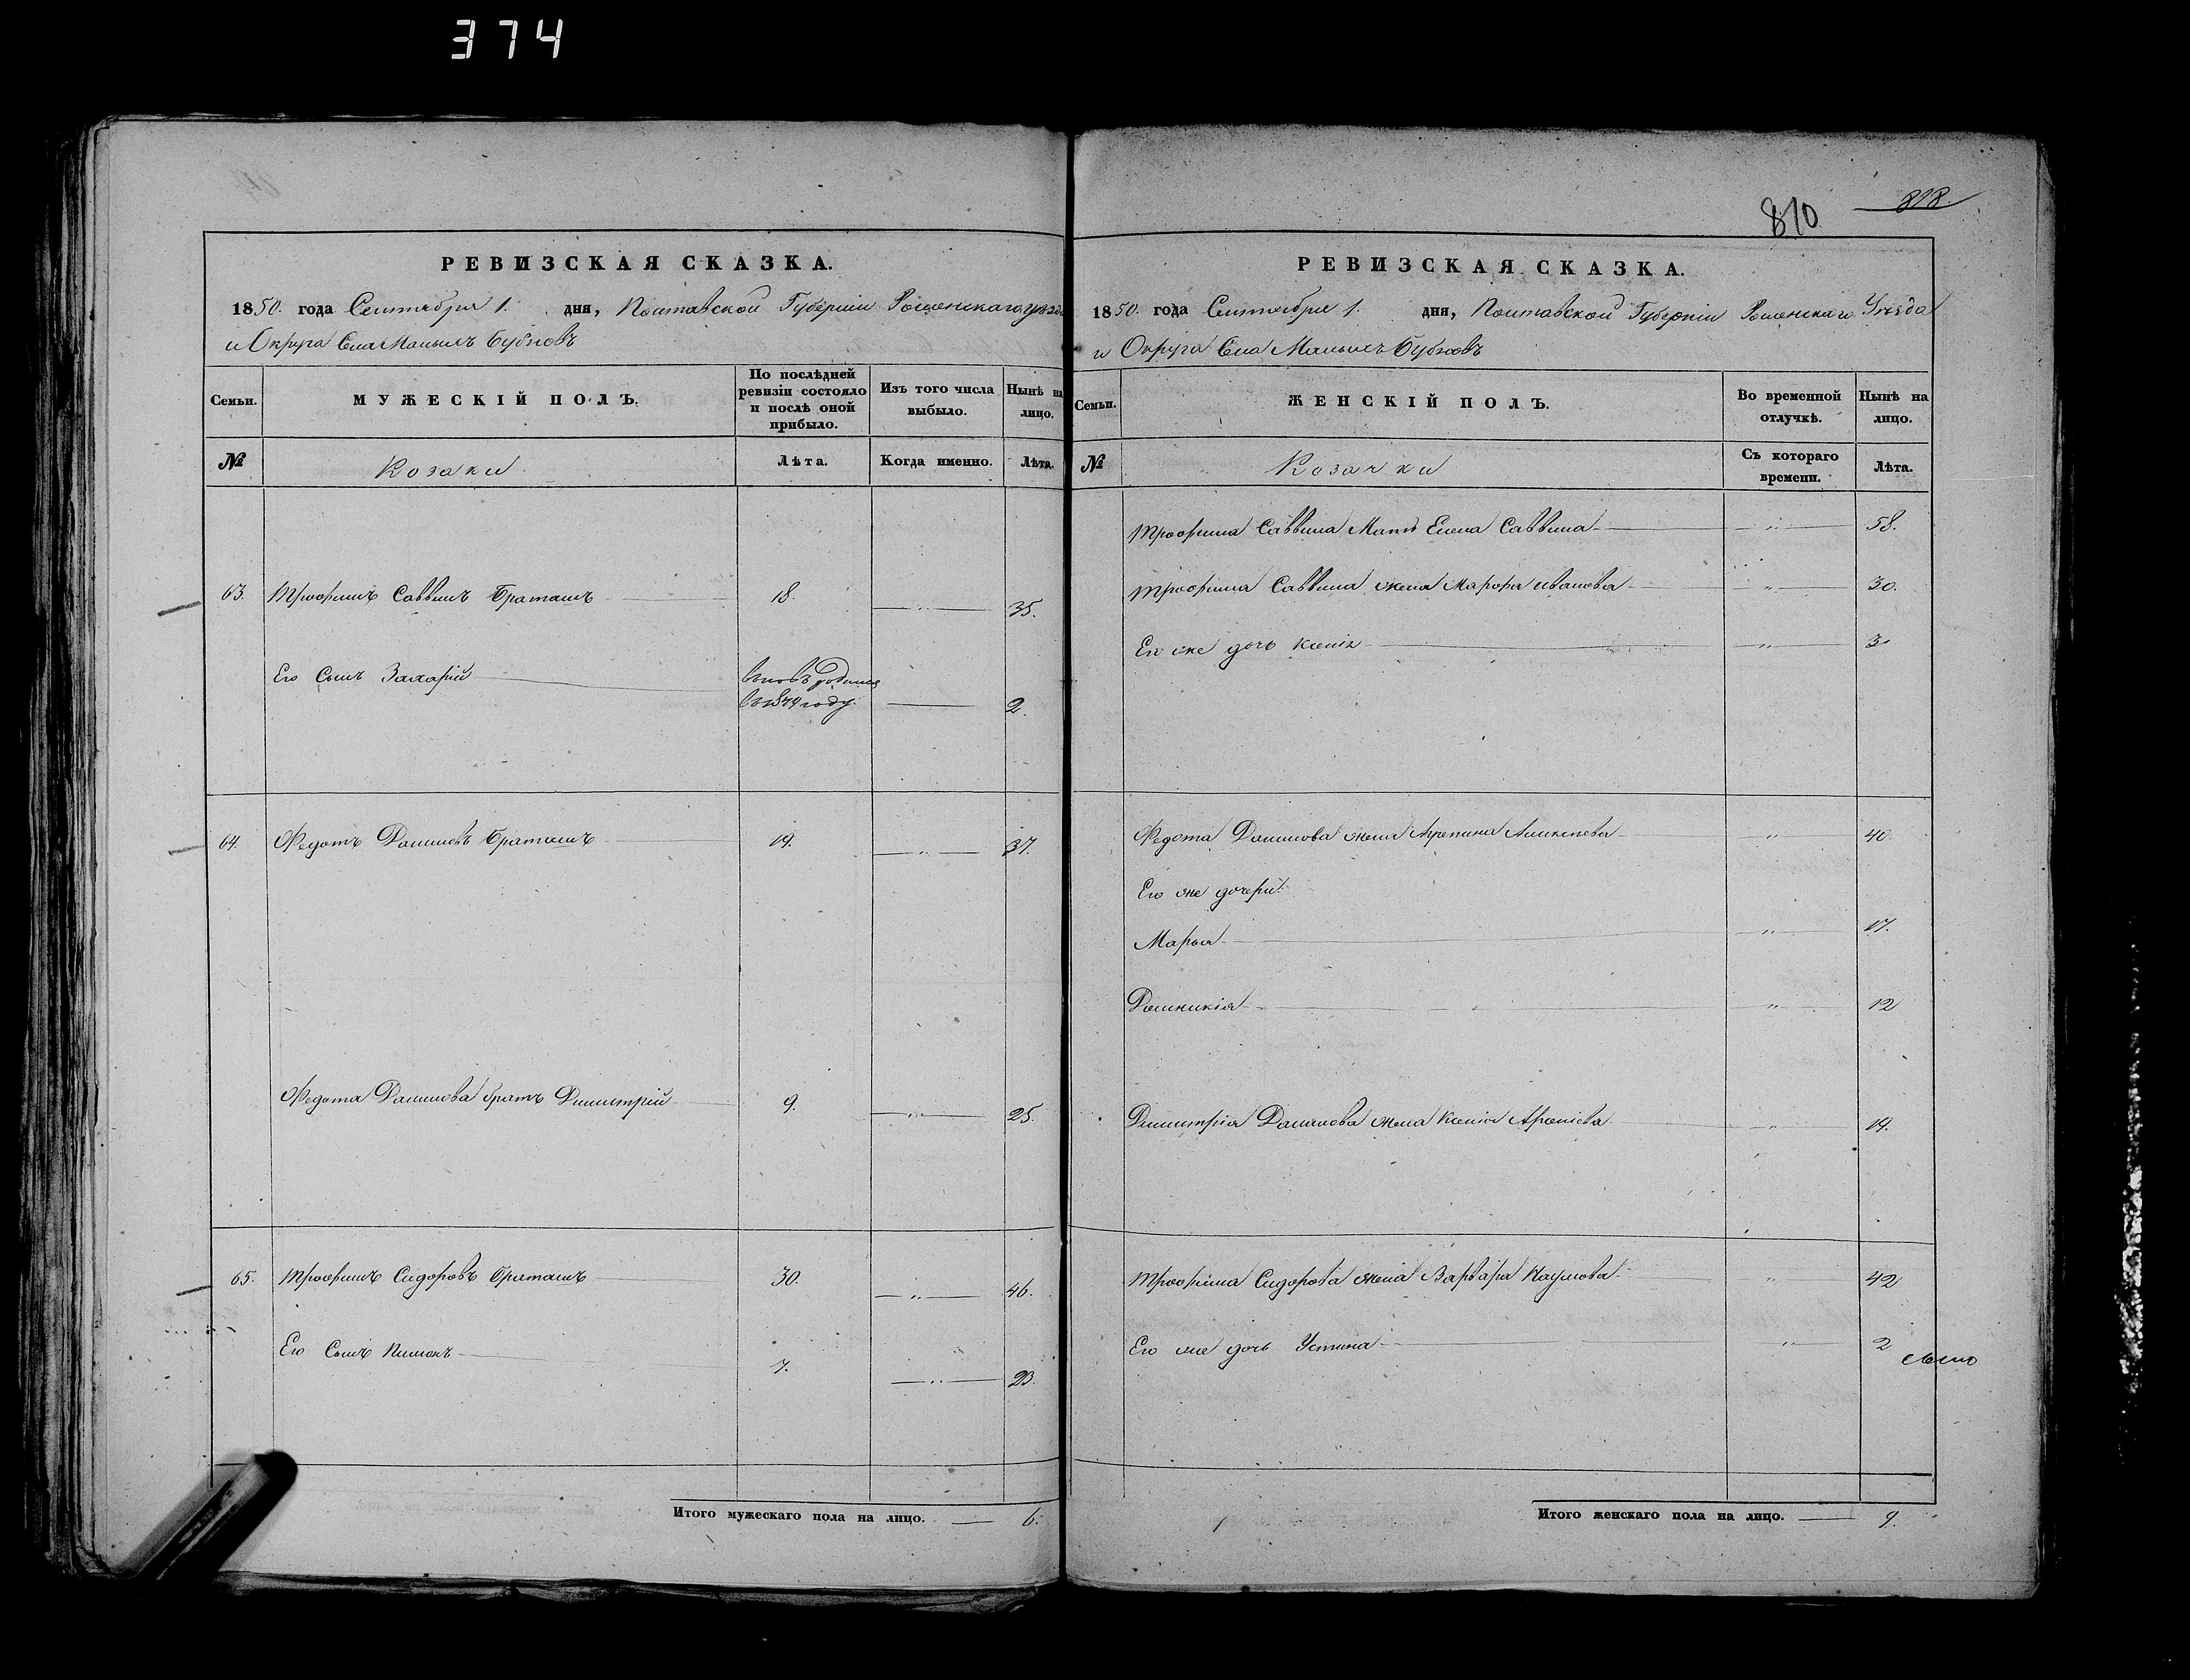 374
810
818.
РЕВИЗСКАЯ СКАЗКА.
1850. года Сентября 1. дня, Полтавской Губерніи Роменскаго уѣзда
и Округа Села Малыхъ Бубновъ
Семьи.
МУЖЕСКІЙ ПОЛЪ.
По послѣдней ревизіи состояло и послѣ оной прибыло.
Изъ того числа выбыло.
Нынѣ на лицо.
№
Козаки
Лѣта.
Когда именно.
Лѣта.
63. Трофимъ Саввинъ Браташъ 18. — " — 35.
Его Сынъ Захарій вновь родился
въ 1849 году. — 2.
64. Федотъ Даниловъ Браташъ 19. — " — 37.
Федота Данилова братъ Димитрій 9. — " — 25.
65. Трофимъ Сидоровъ Браташъ 30. — " — 46.
Его Сынъ Пимонъ 7. — " — 23.
Итого мужескаго пола на лицо. — 6.
РЕВИЗСКАЯ СКАЗКА.
1850. года Сентября 1. дня, Полтавской Губерніи Роменскаго Уѣзда
и Округа Села Малыхъ Бубновъ
Семьи.
ЖЕНСКІЙ ПОЛЪ.
Во временной отлучкѣ.
Нынѣ на лицо.
№
Козачки
Съ котораго времени.
Лѣта.
Трофима Саввина Мать Елена Саввина — " — 58.
Трофима Саввина жена Марфа Иванова — " — 30.
Его же дочь Ксенія — " — 3
Федота Данилова жена Агрепина Алексѣева " 40.
Его же дочери:
Марья — " — 17.
Домникія — " — 12
Димитрія Данилова жена Ксенія Арсеніева — " — 19.
Трофима Сидорова жена Варвара Наумова " 42
Его же дочь Устина — " — 2
Итого женскаго пола на лицо. — 9.